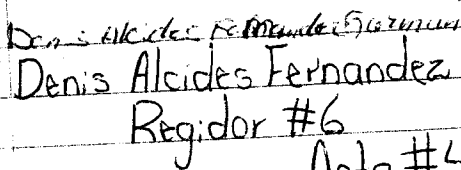 Denis Alcides Fernandez
Denis Alcides Fernandez
Regidor #6